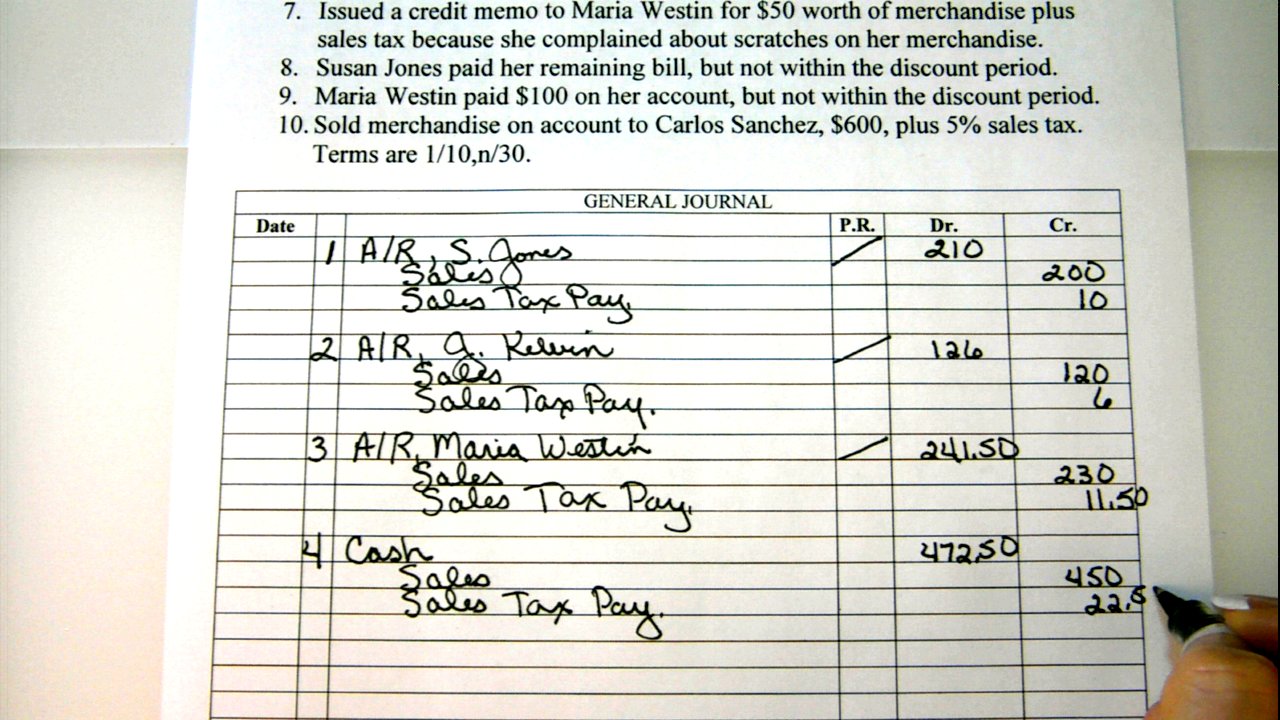 7. Issued a credit memo to Maria Westin for $50 worth of merchandise plus
sales tax because she complained about scratches on her merchandise.
8. Susan Jones paid her remaining bill, but not within the discount period.
9. Maria Westin paid $100 on her account, but not within the discount period.
10. Sold merchandise on account to Carlos Sanchez, $600, plus 5% sales tax.
Terms are 1/10,n/30.
GENERAL JOURNAL
Date P.R. Dr. Cr.
1 A/R, S. Jones 210
Sales 200
Sales Tax Pay. 10
2 A/R, J. Kelvin 126
Sales 120
Sales Tax Pay. 6
3 A/R, Maria Westin 241.50
Sales 230
Sales Tax Pay. 11.50
4 Cash 472.50
Sales 450
Sales Tax Pay. 22.5